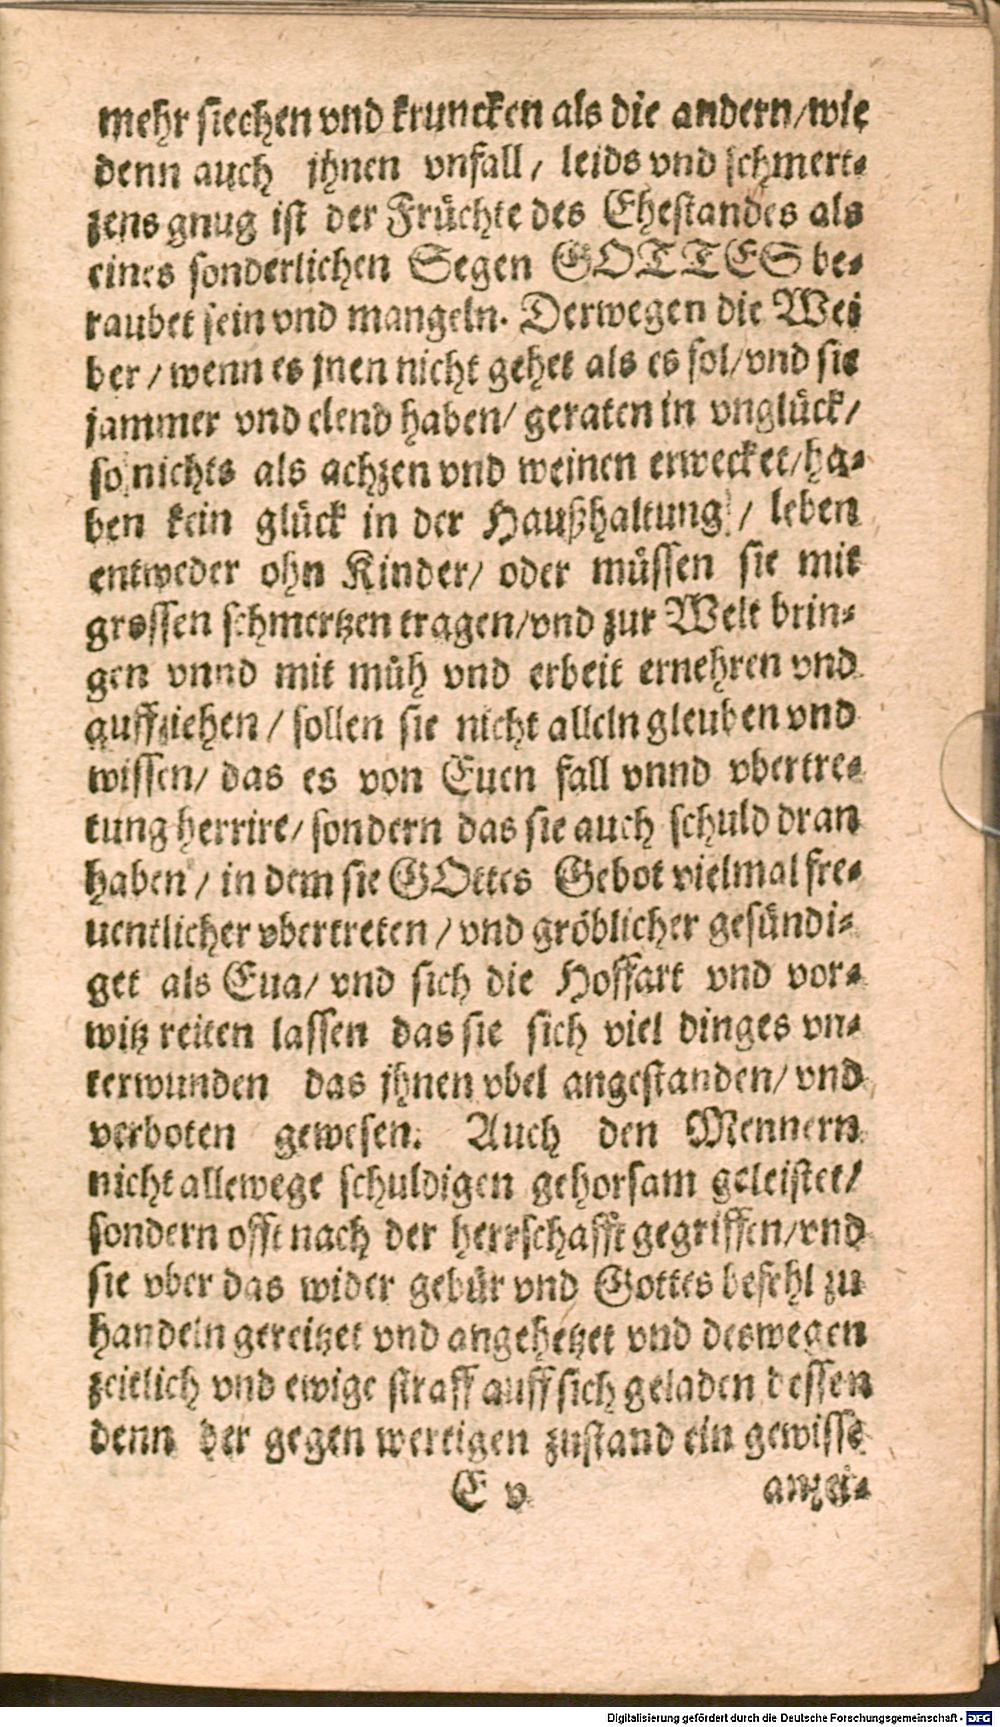 mehr siechen vnd kruncken als die andern/wie
denn auch jhnen vnfall/ leids vnd schmert-
zens gnug ist der Früchte des Ehestandes als
eines sonderlichen Segen GOTTES be-
raubet sein vnd mangeln. Derwegen die Wei
ber/wenn es jnen nicht gehet als es sol/vnd sie
jammer vnd elend haben/ geraten in vnglück/
so nichts als achzen vnd weinen erwecket/ha-
ben kein glück in der Haußhaltung/ leben
entweder ohn Kinder/ oder müssen sie mit
grossen schmertzen tragen/vnd zur Welt brin-
gen vnnd mit müh vnd erbeit ernehren vnd
auffziehen/ sollen sie nicht allein gleuben vnd
wissen/ das es von Euen fall vnnd vbertre-
tung herrire/ sondern das sie auch schuld dran
haben/ in dem sie GOttes Gebot vielmal fre-
uentlicher vbertreten/ vnd gröblicher gesündi-
get als Eua/ vnd sich die Hoffart vnd vor-
witz reiten lassen das sie sich viel dinges vn-
terwunden das jhnen vbel angestanden/ vnd
verboten gewesen. Auch den Mennern
nicht allewege schuldigen gehorsam geleistet/
sondern offt nach der herrschafft gegriffen/vnd
sie vber das wider gebür vnd Gottes befehl zu
handeln gereitzet vnd angehetzet vnd deswegen
zeitlich vnd ewige straff auff sich geladen dessen
denn der gegen wertigen zustand ein gewisse
E v anzei-
Digitalisierung gefördert durch die Deutsche Forschungsgemeinschaft - DFG